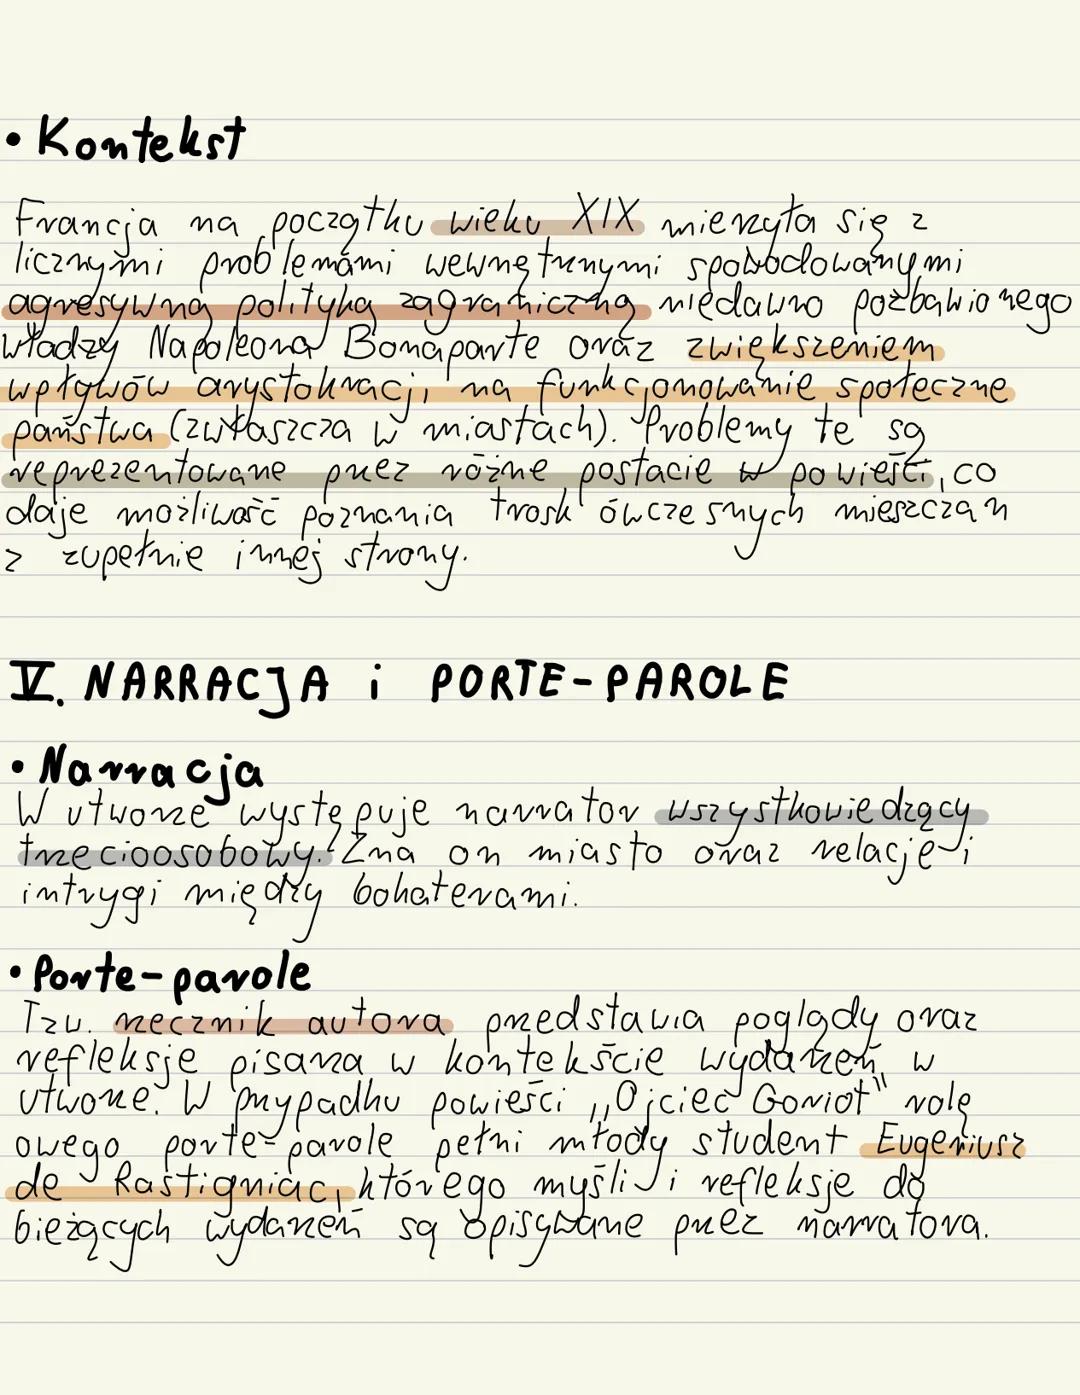 • Kontekst
Francja na początku wieku XIX mierzyła się z
licznymi problemami wewnętrznymi spowodowanymi
agresywną polityką zagraniczną niedawno pozbawionego
władzy Napoleona Bonaparte oraz zwiększeniem
wpływów arystokracji na funkcjonowanie społeczne
państwa (zwłaszcza w miastach). Problemy te są
reprezentowane przez różne postacie w powieści, co
daje możliwość poznania trosk ówczesnych mieszczan
z zupełnie innej strony.
V. NARRACJA i PORTE-PAROLE
• Narracja
W utworze występuje narrator wszystkowiedzący
trzecioosobowy. Zna on miasto oraz relacje i
intrygi między bohaterami.
• Porte-parole
Tzw. rzecznik autora przedstawia poglądy oraz
refleksje pisarza w kontekście wydarzeń w
utworze. W przypadku powieści „Ojciec Goriot" rolę
owego porte-parole pełni młody student Eugeniusz
de Rastigniac, którego myśli i refleksje do
bieżących wydarzeń są opisywane przez narratora.